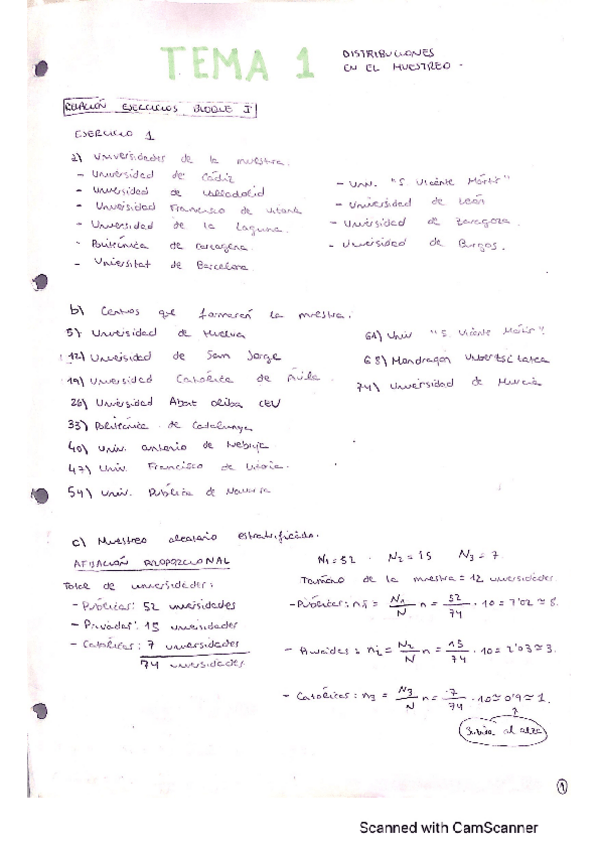 TEMA 1
DISTRIBUCIONES
EN EL MUESTREO.
RELACIÓN EJERCICIOS BLOQUE I
EJERCICIO 1
a) Universidades de la muestra.
- Universidad de Cádiz
- Universidad de Valladolid
- Universidad Francisco de Vitoria
- Universidad de la Laguna.
- Politécnica de Cartagena.
- Universitat de Barcelona.
- Univ. "S. Vicente Mártir"
- Universidad de León
- Universidad de Zaragoza.
- Universidad de Burgos.
b) Centros que formarán la muestra.
5) Universidad de Huelva
12) Universidad de San Jorge
19) Universidad Católica de Ávila.
26) Universidad Abat Oliba CEU
33) Politécnica de Catalunya
40) Univ. Antonio de Nebrija
47) Univ. Francisco de Vitoria.
54) Univ. Pública de Navarra
61) Univ "S. Vicente Mártir".
68) Mondragon
74) Universidad de Murcia
c) Muestreo aleatorio estratificado.
AFIJACIÓN PROPORCIONAL
Total de universidades:
- Públicas: 52 universidades
- Privadas: 15 universidades
- Católicas: 7 universidades
74 universidades
N₁=52 . N₂=15 N₃=7.
Tamaño de la muestra = 12 universidades.
- Públicas: n₁ = N₁/N n = 52/74 · 10 = 7'02 ≅ 8.
- Privadas: n₂ = N₂/N n = 15/74 · 10 = 2'03 ≅ 3.
- Católicas: n₃ = N₃/N n = 7/74 · 10 ≅ 0'9 ≅ 1.
Subirá al alza
1
Scanned with CamScanner